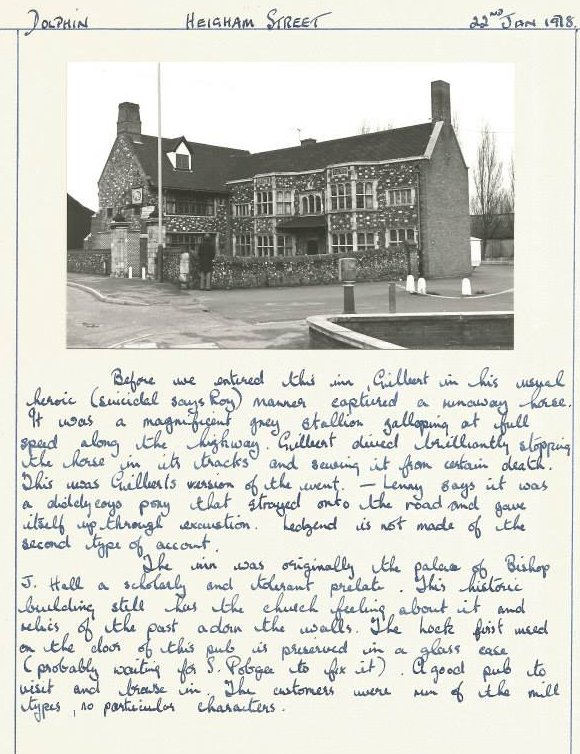 DOLPHIN HEIGHAM STREET 22ND JAN 1978
Before we entered this inn, Gilbert in his usual
heroic (suicidal says Roy) manner captured a runaway horse.
It was a magnificent grey stallion galloping at full
speed along the highway. Gilbert dived brilliantly stopping
the horse in its tracks and saving it from certain death.
This was Gilberts version of the event. — Lenny says it was
a diddycoys pony that strayed onto the road and gave
itself up through exaustion. Ledgend is not made of the
second type of account.
The inn was originally the palace of Bishop
J. Hall a scholarly and tolerant prelate. This historic
building still has the church feeling about it and
relics of the past adorn the walls. The lock first used
on the door of this pub is preserved in a glass case
(probably waiting for S. to fix it). A good pub to
visit and browse in. The customers were run of the mill
types, no particular characters.